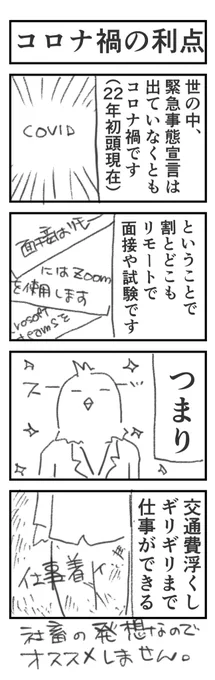 コロナ禍の利点
世の中、
緊急事態宣言は
出ていなくとも
コロナ禍です
(22年初頭現在)
COVID
ということで
割とどこも
リモートで
面接や試験です
面接はリモー
にはZoom
を使用します
rosoft
teamsを
つまり
スーーー
交通費浮くし
ギリギリまで
仕事ができる
仕事着
社畜の発想なので
オススメしません。